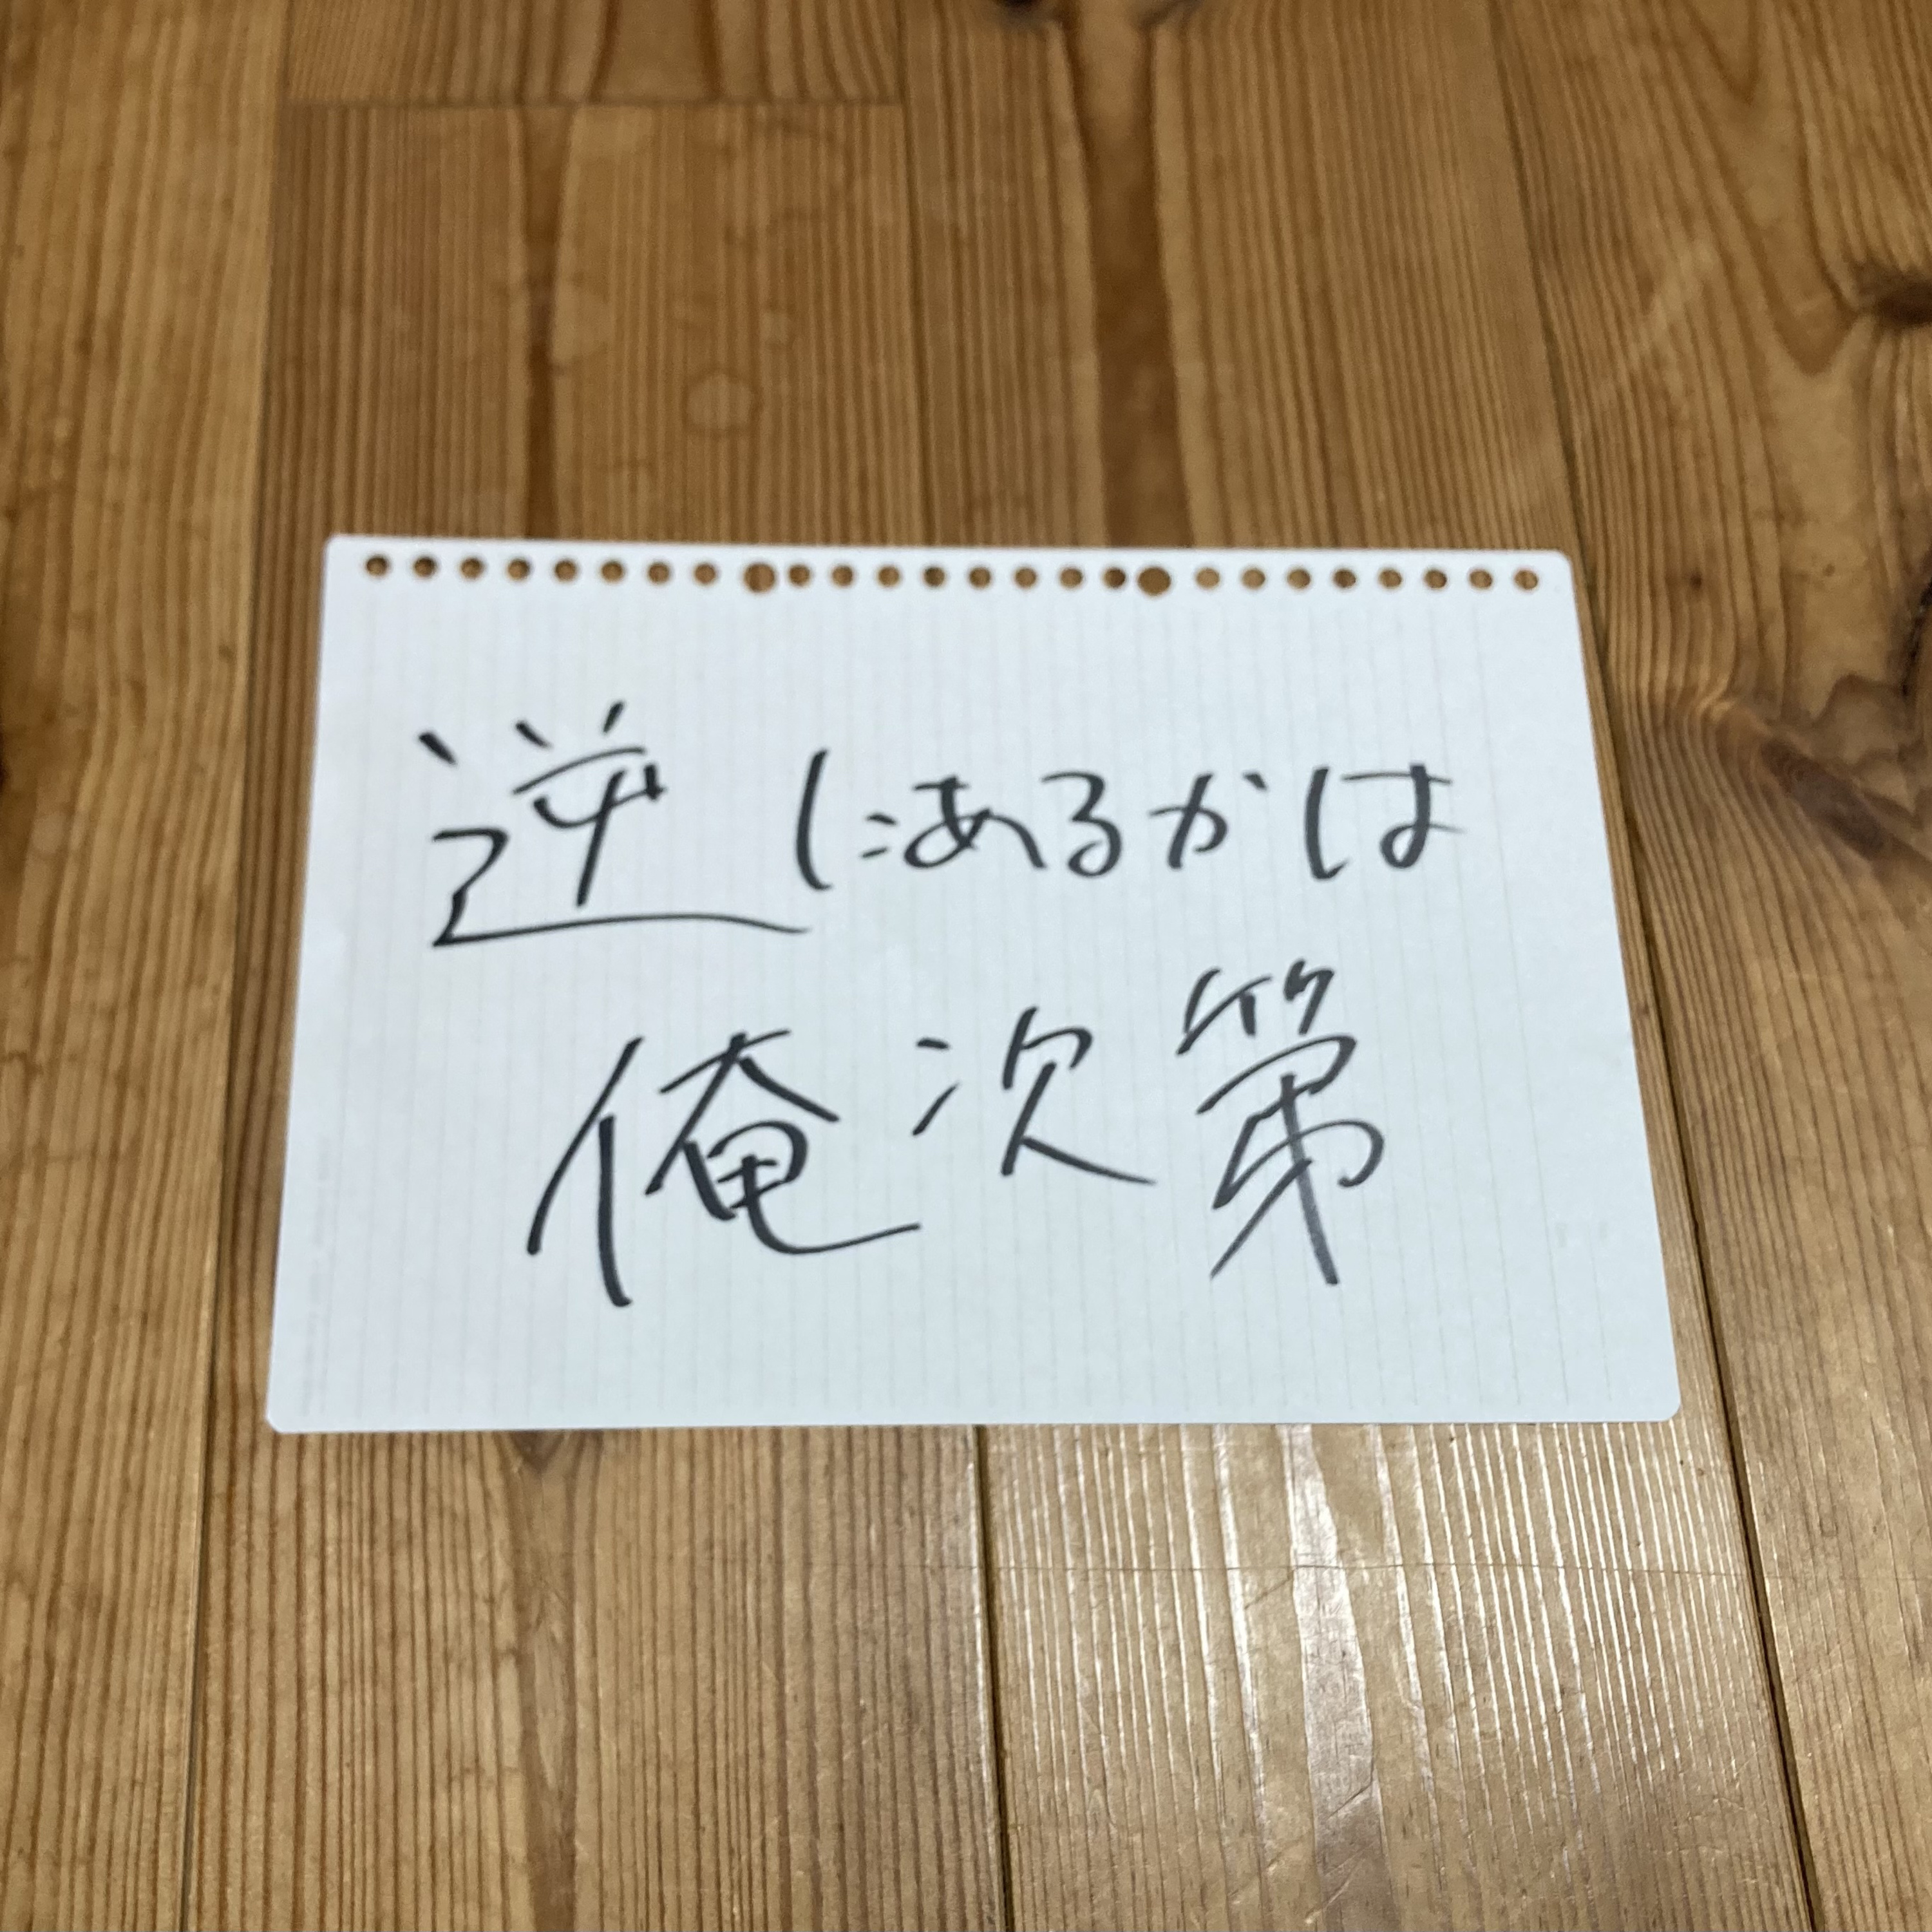 逆にあるかは
俺次第